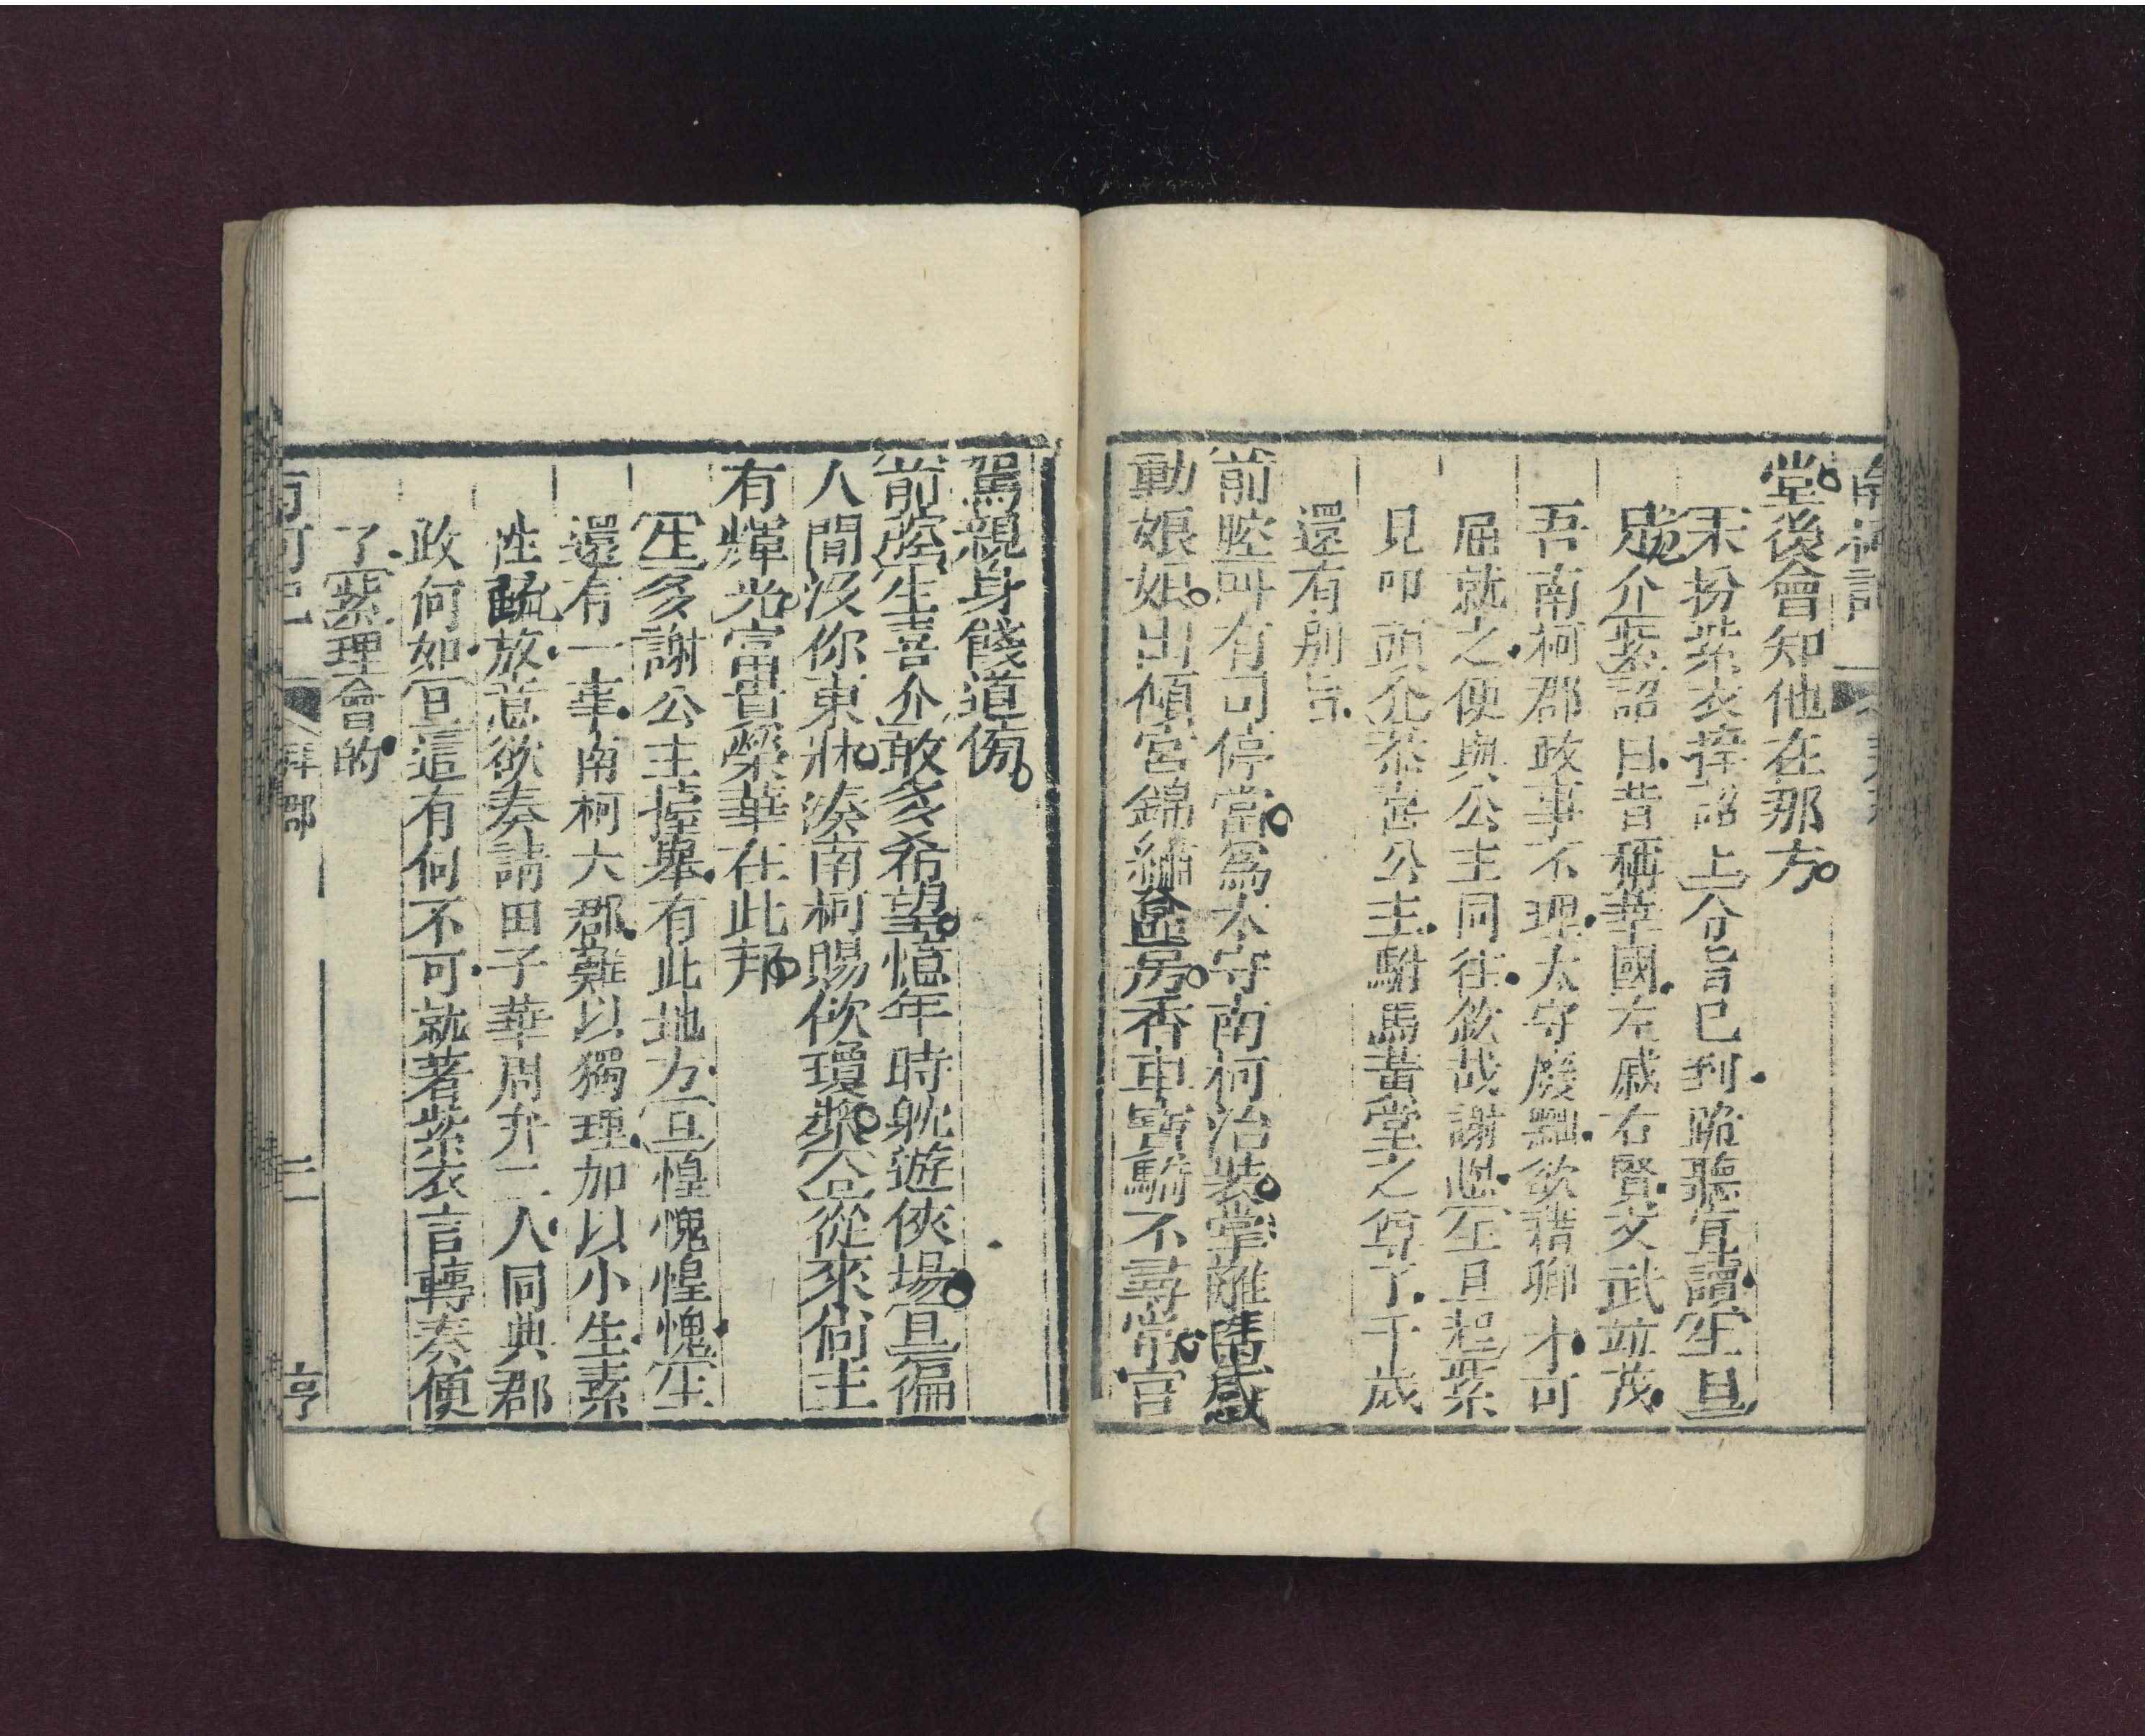 南柯記
堂後會知他在那方
末扮紫衣捧詔上介旨已到跪聽宣讀生旦
跪介紫詔曰昔稱華國左戚右賢文武竝茂
吾南柯郡政事不理太守廢黜欲藉卿才可
屈就之便與公主同往欽哉謝恩生旦起紫
見叩頭介恭喜公主駙馬黃堂之尊了千歲
還有別旨
前腔叫有司停當爲太守南柯治裝掌離筵感
動娘娘出傾宮錦繡奩房香車寶騎不尋常官
駕親身餞道傍
前腔生喜介敢多希望憶年時躭遊俠場旦徧
人間沒你東牀湊南柯賜飲瓊漿合從來尚主
有輝光富貴榮華在此邦
生多謝公主擡舉有此地方旦惶愧惶愧生
還有一事南柯大郡難以獨理加以小生素
性疏放意欲奏請田子華周弁二人同典郡
政何如旦這有何不可就著紫衣言轉奏便
了紫理會的
南柯記 拜郡 二 亨